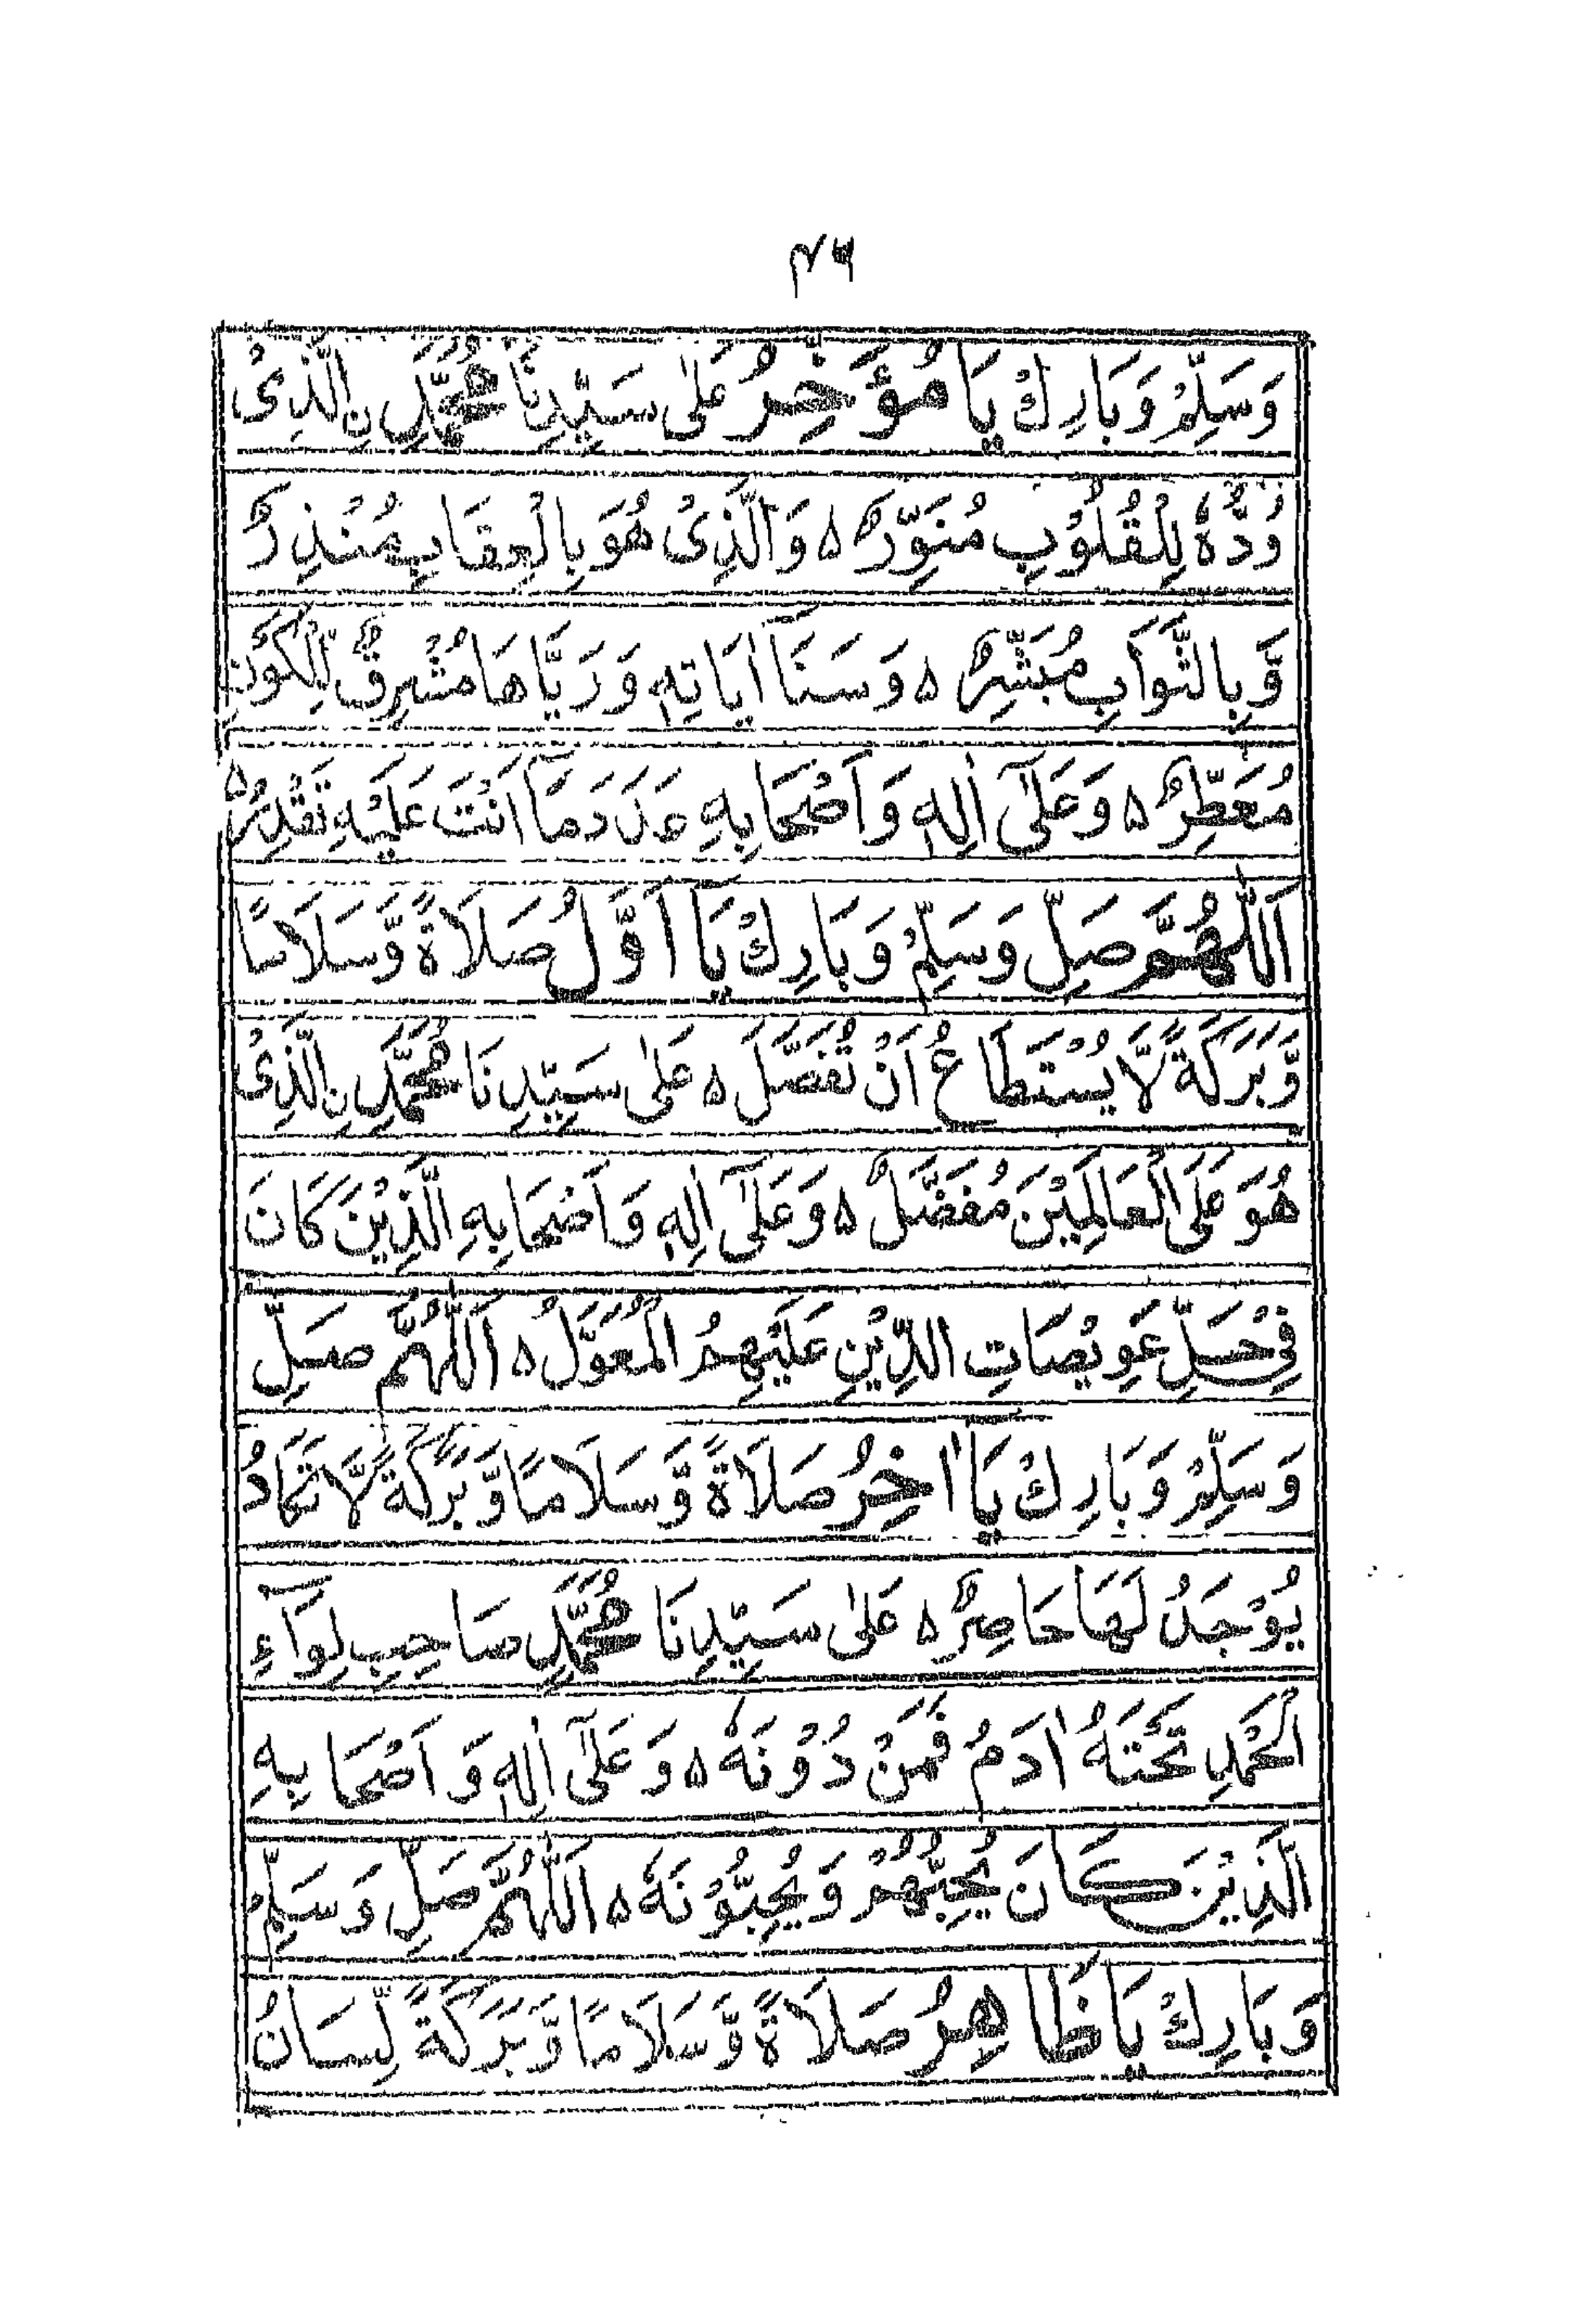 وَسَلِّمْ وَبَارِكْ يَا مُؤَخِّرُ عَلٰى سَيِّدِنَا مُحَمَّدِ نِ الَّذِىْ
وُدُّهٗ لِلْقُلُوْبِ مُنَوِّرٌ ۵ وَالَّذِىْ هُوَ بِالْعِقَابِ مُنْذِرٌ
وَّبِالثَّوَابِ مُبَشِّرٌ ۵ وَسَنَآ اٰيَاتِهٖ وَرَيَّاهَا مُشْرِقٌ لِّلْكَوْنِ
مُعَطِّرٌ ۵ وَعَلٰٓى اٰلِهٖ وَاَصْحَابِهِ عَدَدَ مَآ اَنْتَ عَلَيْهِ تَقْدِرُ ۵
اَللّٰهُمَّ صَلِّ وَسَلِّمْ وَبَارِكْ يَا اَوَّلُ صَلَاةً وَّسَلَامًا
وَّبَرَكَةً لَّا يُسْتَطَاعُ اَنْ تُفَصَّلَ ۵ عَلٰى سَيِّدِنَا مُحَمَّدِ نِ الَّذِىْ
هُوَ عَلَى الْعَالَمِيْنَ مُفَضَّلٌ ۵ وَعَلٰٓى اٰلِهٖ وَاَصْحَابِهِ الَّذِيْنَ كَانَ
فِىْ حَلِّ عَوِيْصَاتِ الدِّيْنِ عَلَيْهِمُ الْمُعَوَّلُ ۵ اَللّٰهُمَّ صَلِّ
وَسَلِّمْ وَبَارِكْ يَا اٰخِرُ صَلَاةً وَّسَلَامًا وَّبَرَكَةً لَّا تَكَادُ
يُوْجَدُ لَهَا حَاصِرٌ ۵ عَلٰى سَيِّدِنَا مُحَمَّدٍ صَاحِبِ لِوَآءِ
الْحَمْدِ تَحْتَهُ اٰدَمُ فَمَنْ دُوْنَهٗ ۵ وَعَلٰٓى اٰلِهٖ وَاَصْحَابِهِ
الَّذِيْنَ كَانَ يُحِبُّهُمْ وَيُحِبُّوْنَهٗ ۵ اَللّٰهُمَّ صَلِّ وَسَلِّمْ
وَبَارِكْ يَا ظَاهِرُ صَلَاةً وَّسَلَامًا وَّبَرَكَةً لِّسَانُ